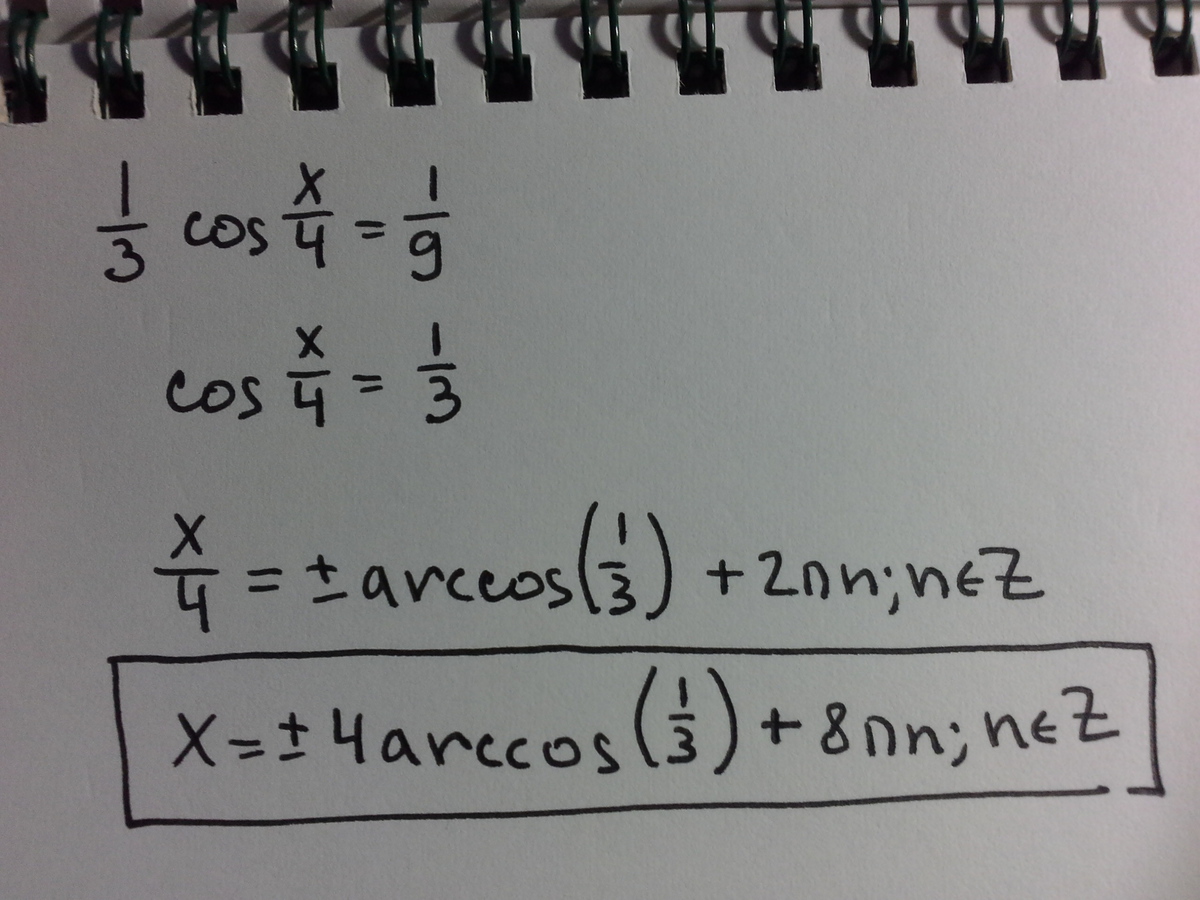 1/3 cos x/4 = 1/9
cos x/4 = 1/3
x/4 = ± arccos(1/3) + 2πn; n∈Z
x = ± 4 arccos(1/3) + 8πn; n∈Z